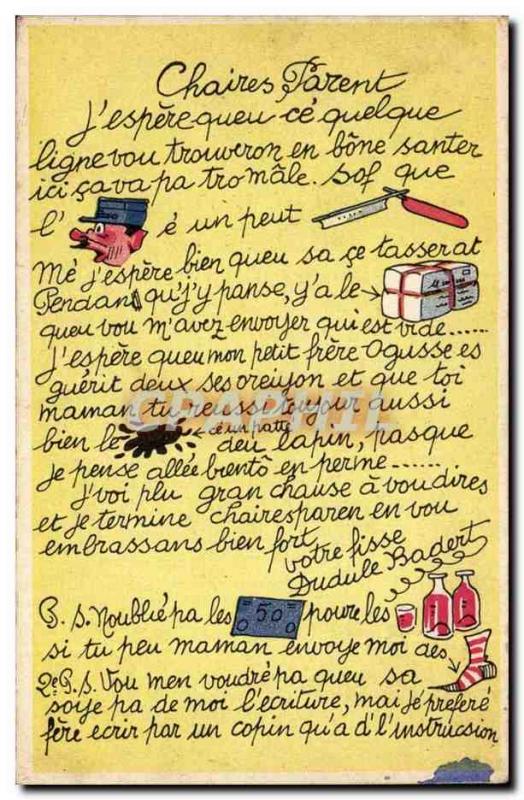 Chaires Parent
J'espère queu çé quelque
ligne vou trouveron en bône santer
ici ça va pa tro mâle. Sof que
l' é un peut
Mé j'espère bien queu sa çe tasserat
Pendant qu'j'y panse, y'a le
queu vou m'avez envoyer qui est vide......
J'espère queu mon petit frère Ogusse es
guérit deux ses oreiyon et que toi
maman tu réussi toujour aussi
bien le ← cé un patté deu lapin, pasque
je pense allée bientô en perme......
J'voi plu gran chause à vou dires
et je termine chairesparen en vou
embrassans bien fort
votre fisse
Dudule Badert
P.S. N'oublié pa les 50 poure les
si tu peu maman envoye moi des
2e P.S. Vou men voudré pa queu sa
soye pa de moi l'écriture, mai je préferé
fère ecrir par un copin qu'a d'l'instrucsion